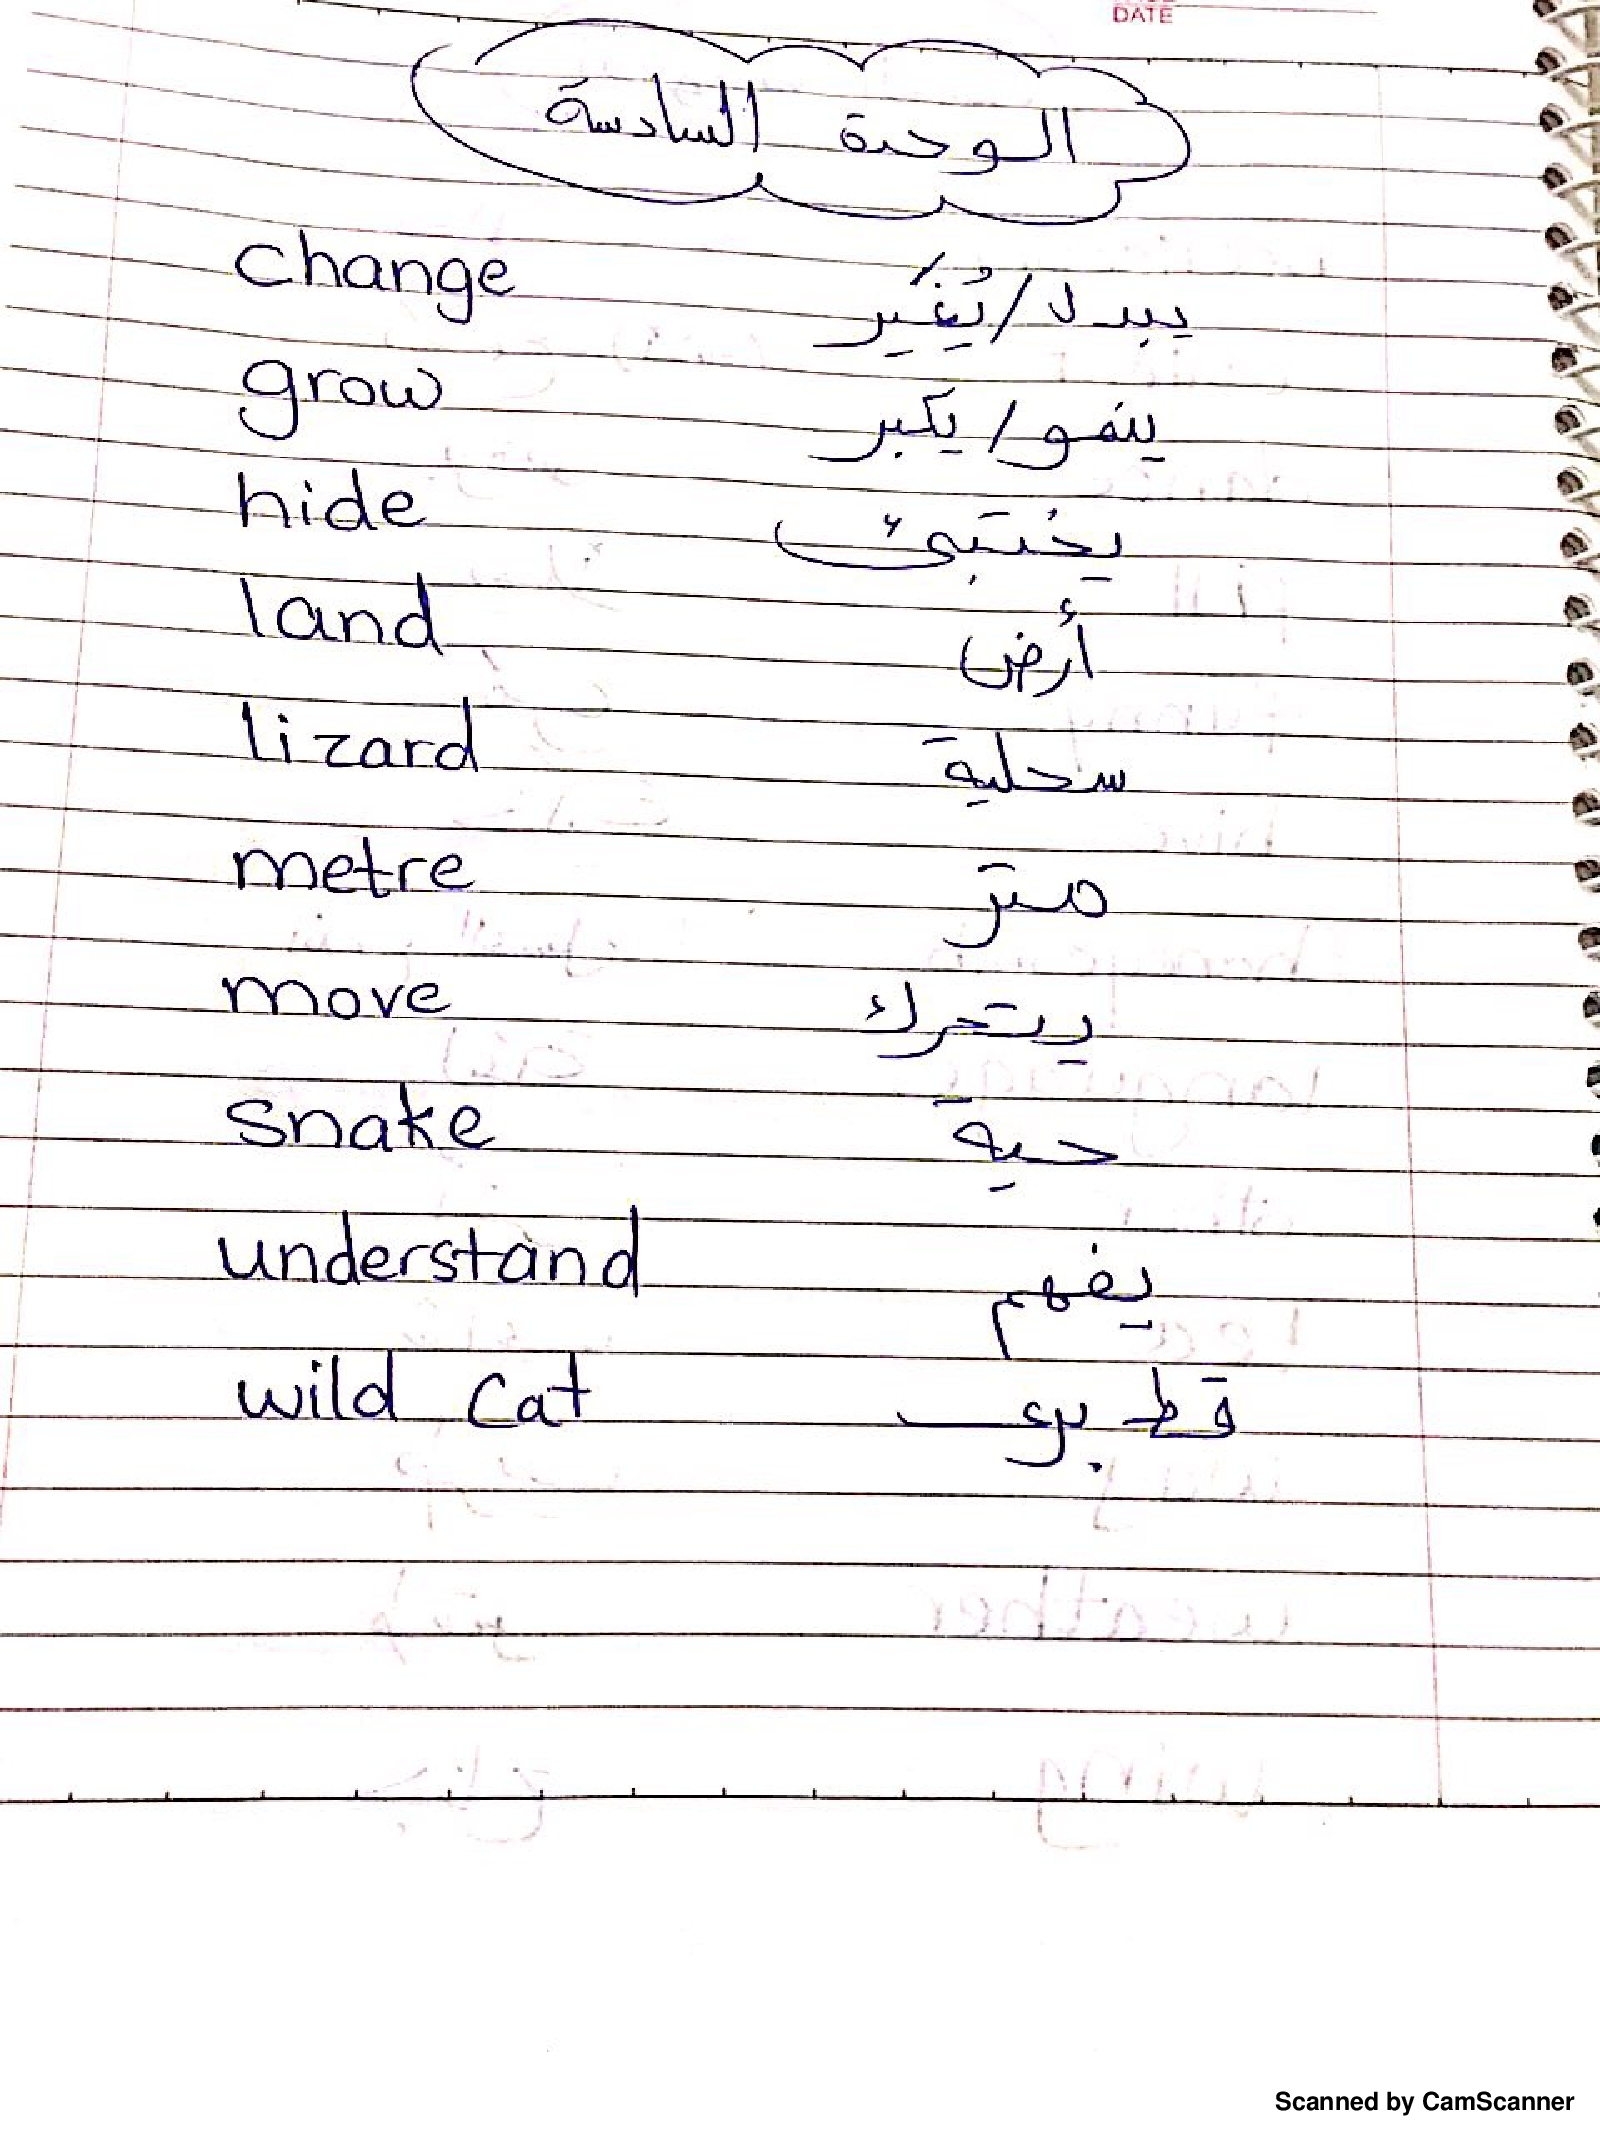 DATE
الوحدة السادسة
change يبدل/يُغيّر
grow ينمو/يكبر
hide يختبئ
land أرض
lizard سحلية
metre متر
move يتحرك
snake حية
understand يفهم
wild cat قط بري
Scanned by CamScanner